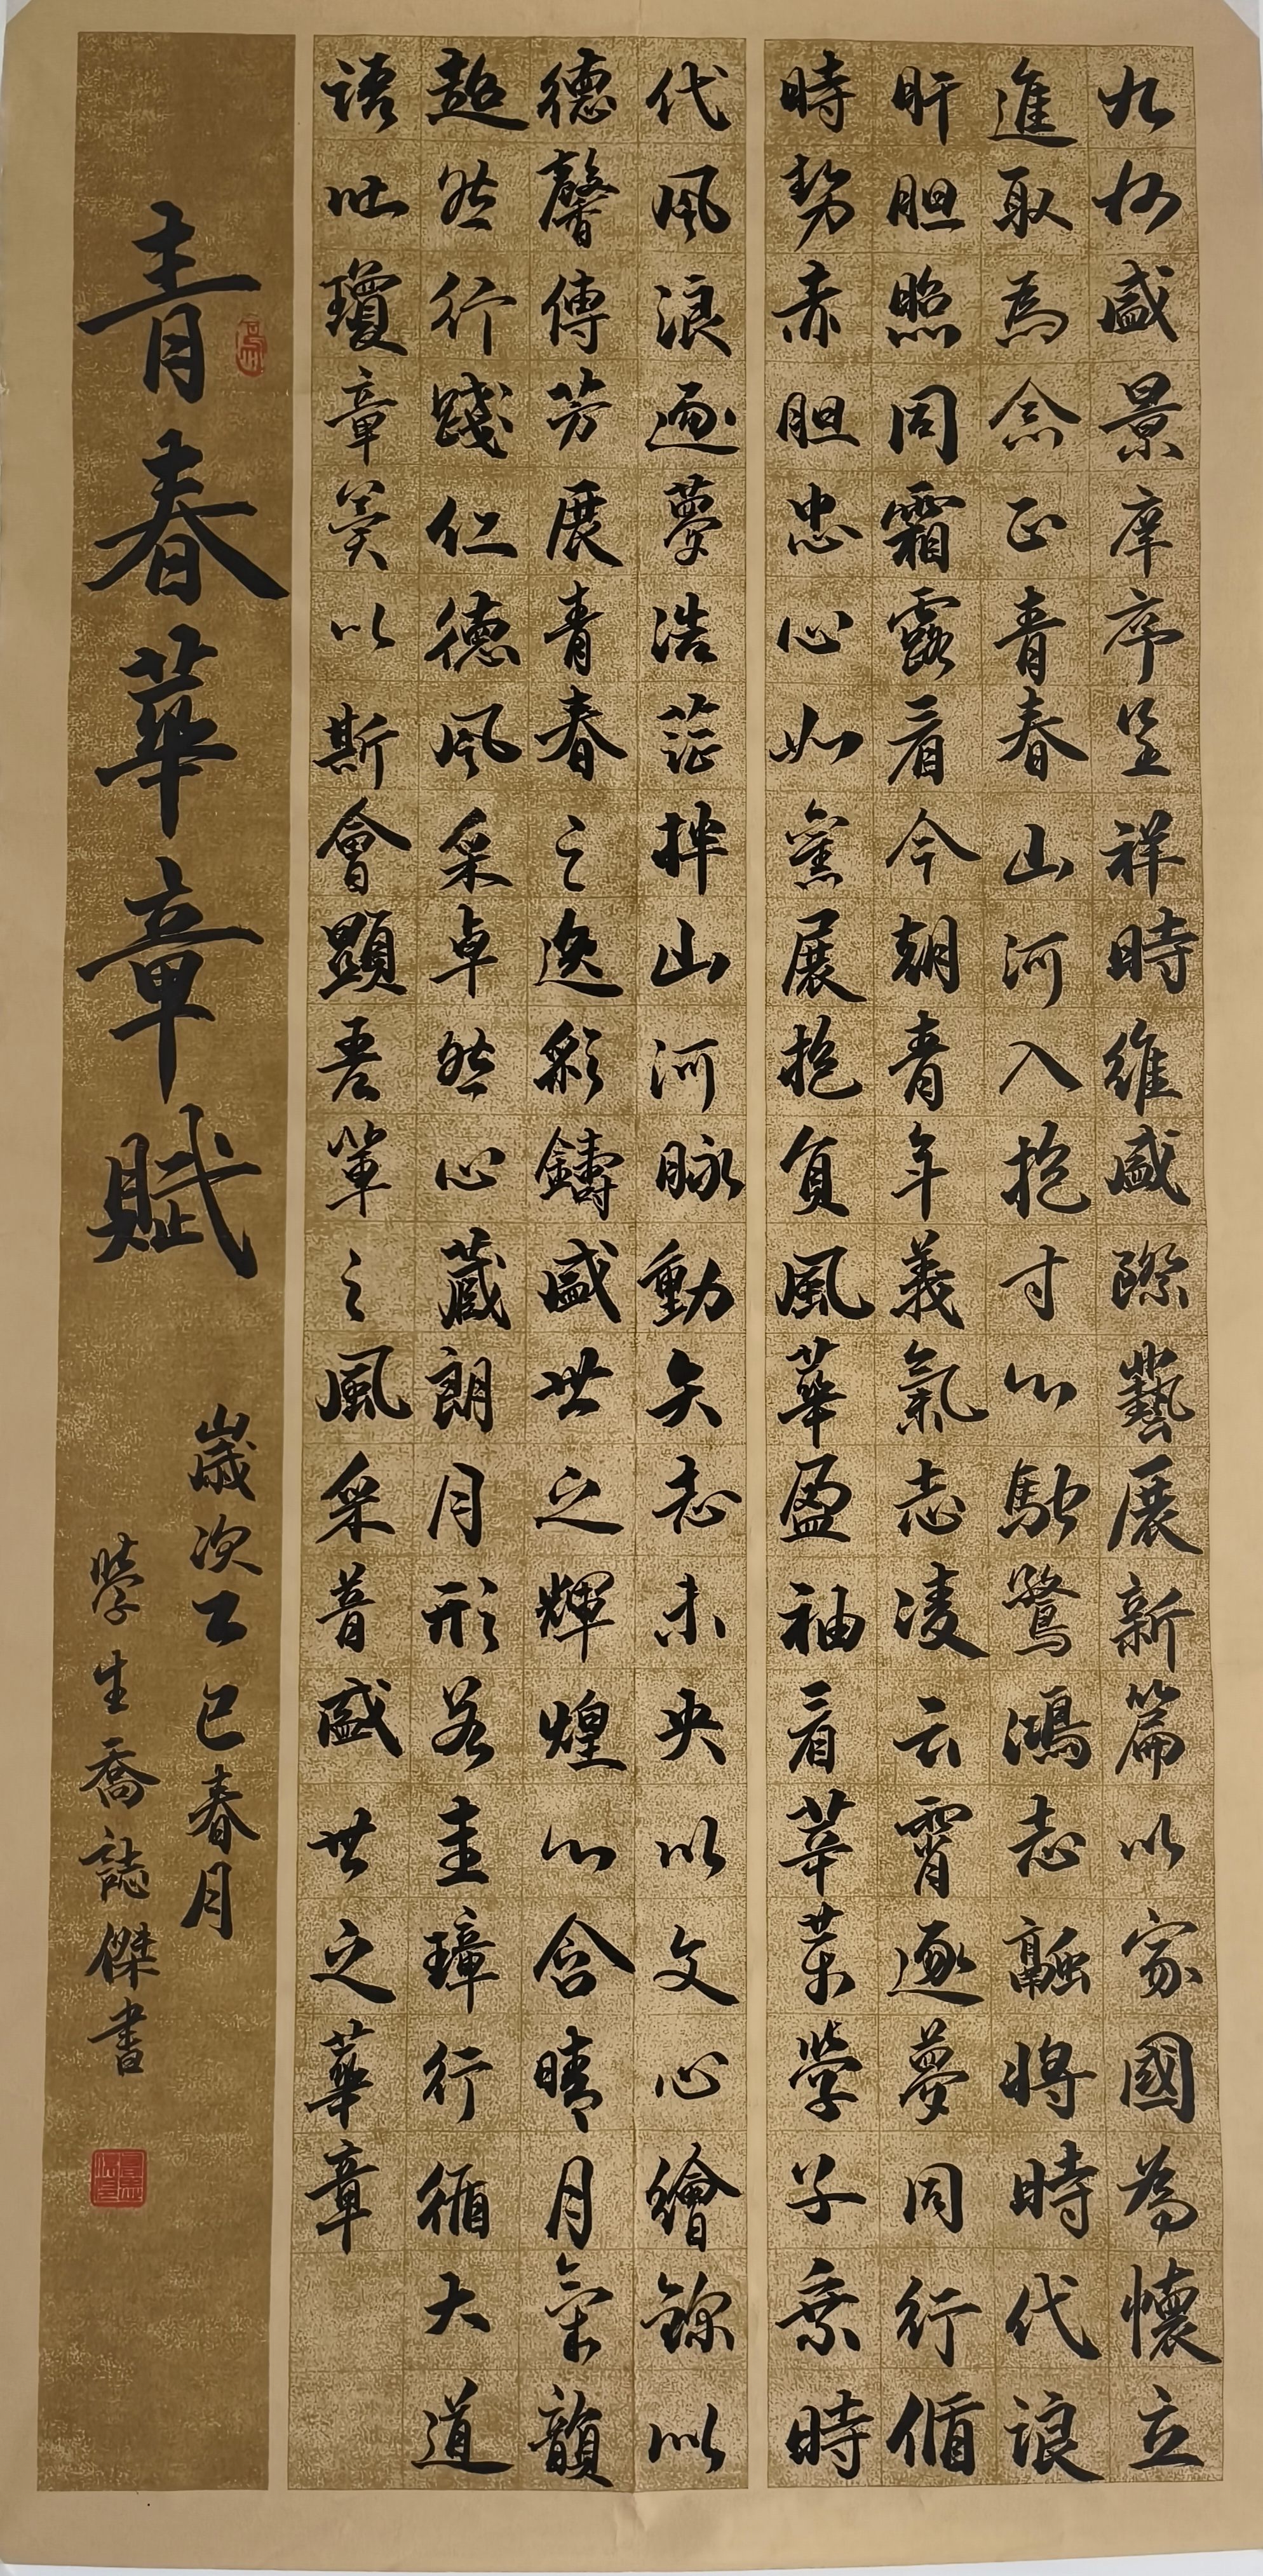 九州盛景庠序呈祥時維盛際藝展新篇以家國為懷立
進取為念正青春山河入抱寸心馳騖鴻志融將時代浪
肝胆照同霜露看今朝青年義氣志凌云霄逐夢同行循
時勢赤胆忠心如窯展抱負風華盈袖看莘莘學子乘時
代風浪逐夢浩茫拌山河脉動矢志未央以文心繪錦以
德馨傳芳展青春之逸彩鑄盛世之輝煌心含晴月氣韻
超然行踐仁德風采卓然心藏朗月形若圭璋行循大道
語吐瓊章美以斯會顯吾輩之風采普盛世之華章
青春華章賦
歲次乙巳春月
學生喬誌傑書